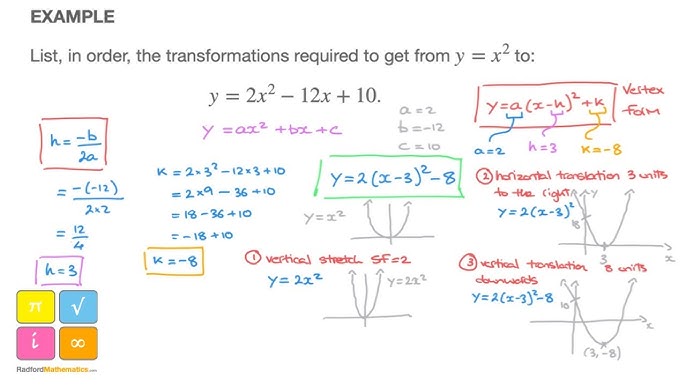 EXAMPLE
List, in order, the transformations required to get from y = x² to:
y = 2x² − 12x + 10.
y = ax² + bx + c
a = 2
b = -12
c = 10
y = a(x-h)² + k
Vertex
Form
a=2
h=3
k=-8
h = -b/2a
= -(-12)/2×2
= 12/4
h = 3
k = 2×3² - 12×3 + 10
= 2×9 - 36 + 10
= 18 - 36 + 10
= -18 + 10
k = -8
y = 2(x-3)² - 8
y = x²
① vertical stretch SF=2
y = 2x²
y = 2x²
② horizontal translation 3 units
to the right
y = 2(x-3)²
y
3
x
③ vertical translation 8 units
downwards
y = 2(x-3)² - 8
10
x
(3,-8)
π
√
i
∞
RadfordMathematics.com